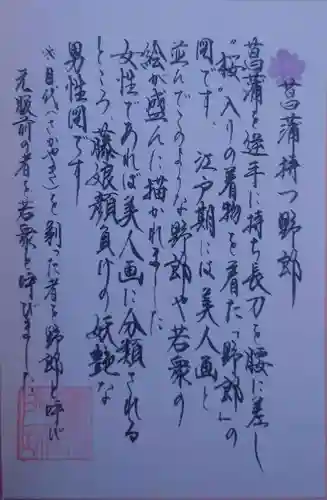 菖蒲持つ野郎
菖蒲を逆手に持ち長刀を腰に差し
"桜"入りの着物を着た「野郎」の
図です。江戸期には美人画と
並んでこのような野郎や若衆の
絵が盛んに描かれました
女性であれば美人画に分類される
ところ、藤娘顔負けの妖艶な
男性図です
※月代(さかやき)を剃った者を野郎と呼び
元服前の者を若衆と呼びました。